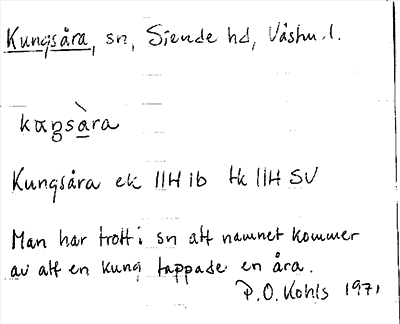 Kungsåra, sn, Siende hd, Västm. l.
kɷŋsàra
Kungsåra ek 11H ib tk 11H SV
Man har trott i sn att namnet kommer
av att en kung tappade en åra.
P.O. Kohls 1971